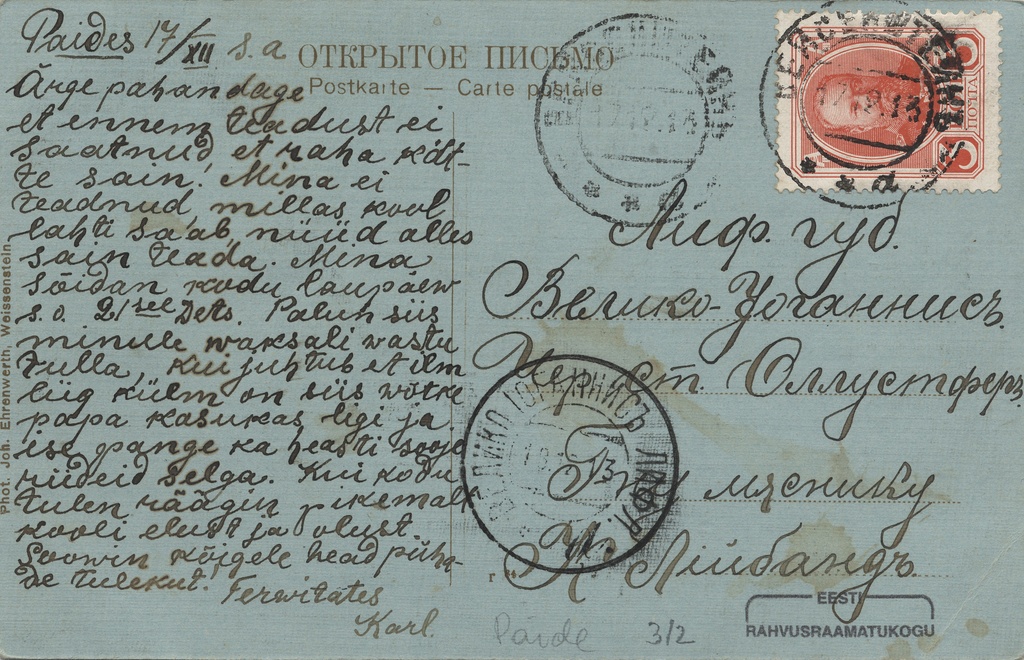 Paides 17/XII s.a
ОТКРЫТОЕ ПИСЬМО
Postkarte — Carte postale
Ärge pahandage
et ennem teadust ei
saatnud, et raha kätt-
te sain. Mina ei
teadnud, millas kool
lahti saab, nüüd alles
sain teada. Mina
sõidan kodu laupäew
s.o. 21sel Dets. Palun siis
minule waksali wastu
tulla, kui juhtub et ilm
liig külm on siis wõtke
papa kasukas ligi ja
ise pange ka heasti sooje
riideid selga. Kui kodu
tulen räägin pikemalt
kooli elust ja olust.
Soowin kõigele head püha-
de tulekut. Terwitates
Karl.
Phot. Joh. Ehrenwerth. Weissenstein.
ПОЧТА
17.12.13
Лиф. губ.
Велико-Іоганнисъ.
Черж ст. Оллустферъ
Г-ну мяснику
Лійбандъ.
ВЕЛИКО ІОГАННИСЪ ЛИФЛ.
Paide 3/2
EESTI
RAHVUSRAAMATUKOGU